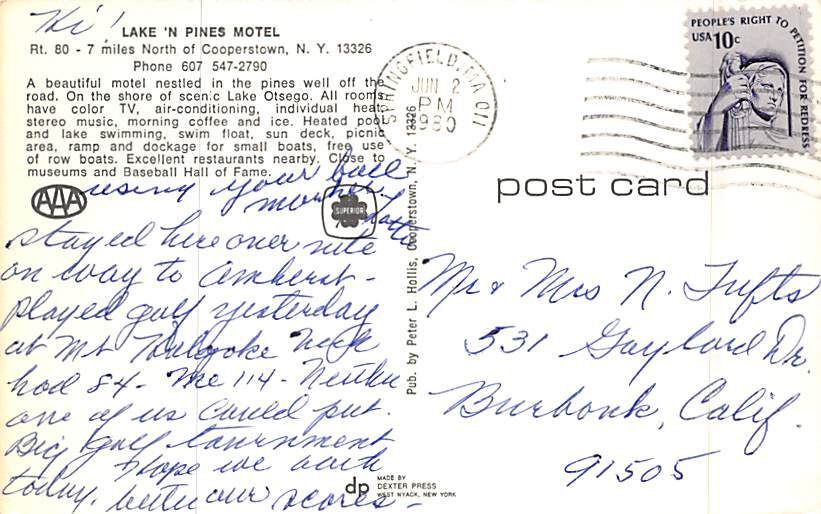 Hi!
LAKE 'N PINES MOTEL
Rt. 80 - 7 miles North of Cooperstown, N. Y. 13326
Phone 607 547-2790
A beautiful motel nestled in the pines well off the
road. On the shore of scenic Lake Otsego. All rooms
have color TV, air-conditioning, individual heat,
stereo music, morning coffee and ice. Heated pool
and lake swimming, swim float, sun deck, picnic
area, ramp and dockage for small boats, free use
of row boats. Excellent restaurants nearby. Close to
museums and Baseball Hall of Fame.
AAA
SUPERIOR
using your ball
stayed here over nite
on way to Amherst -
played golf yesterday
at Mt Holyoke Nick
had 84 - me 114 - Neither
one of us could put.
Big golf tournment
today. Hope we both
better our scores -
Pub. by Peter L. Hollis, Cooperstown, N. Y. 13326
dp
MADE BY
DEXTER PRESS
WEST NYACK, NEW YORK
SPRINGFIELD, MA 011
JUN 2
PM
1980
PEOPLE'S RIGHT TO PETITION FOR REDRESS
USA 10c
post card
Mr & Mrs N. Tufts
531 Gaylord Dr.
Burbank, Calif.
91505